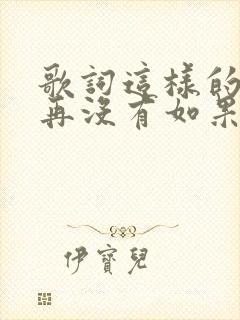 歌詞這樣的
再沒有如果
伊寶兒